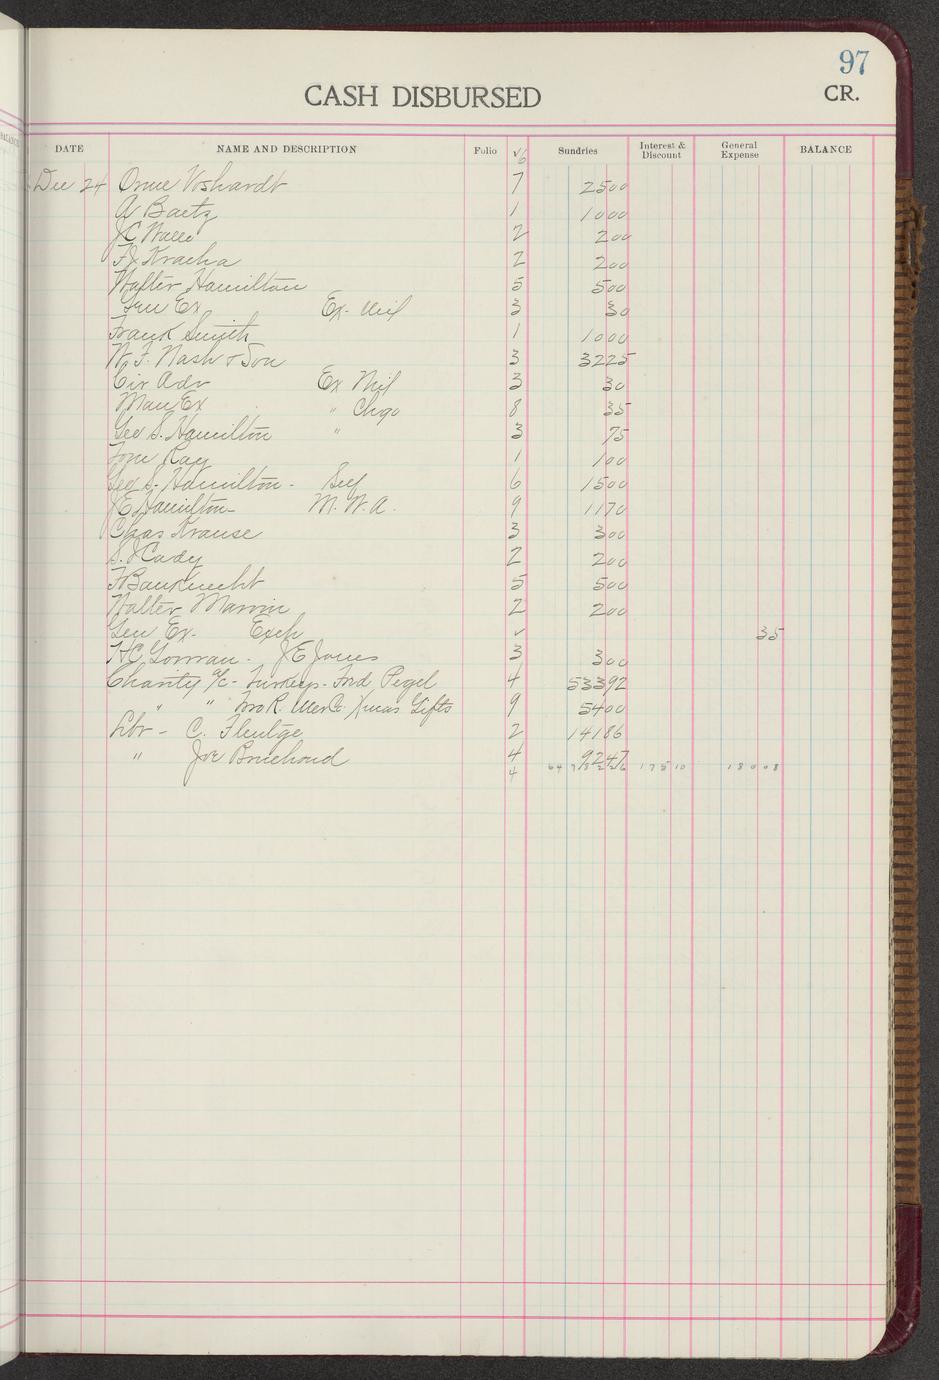 97
CASH DISBURSED CR.
DATE NAME AND DESCRIPTION Folio √6 Sundries Interest & Discount General Expense BALANCE
Dec 24 Orrie Voshardt 7 2500
A Baetz 1 1000
J C 2 200
F J Kracha 2 200
Walter Hamilton 5 500
Gen Ex Ex- Mil 3 30
Frank Smith 1 1000
W. F. Nash & Son 3 3225
Cir Adv Ex Mil 3 30
Man Ex " Chgo 8 35
Geo S. Hamilton " 3 75
Tom Ray 1 100
Geo S. Hamilton - Self 6 1500
J E Hamilton- M. W. A. 9 1170
Chas Krause 3 300
S. J Cady 2 200
F Bauknecht 5 500
Walter 2 200
Gen Ex- Exch ✓ 35
H C Gorman - J E Jones 3 300
Charity a/c - Turkeys - Frd Pegel 4 53392
" " Two R. Merc. Xmas Gifts 9 5400
Lbr - C. Fluetge 2 14186
" Joe 4 9247
4 17510 18008